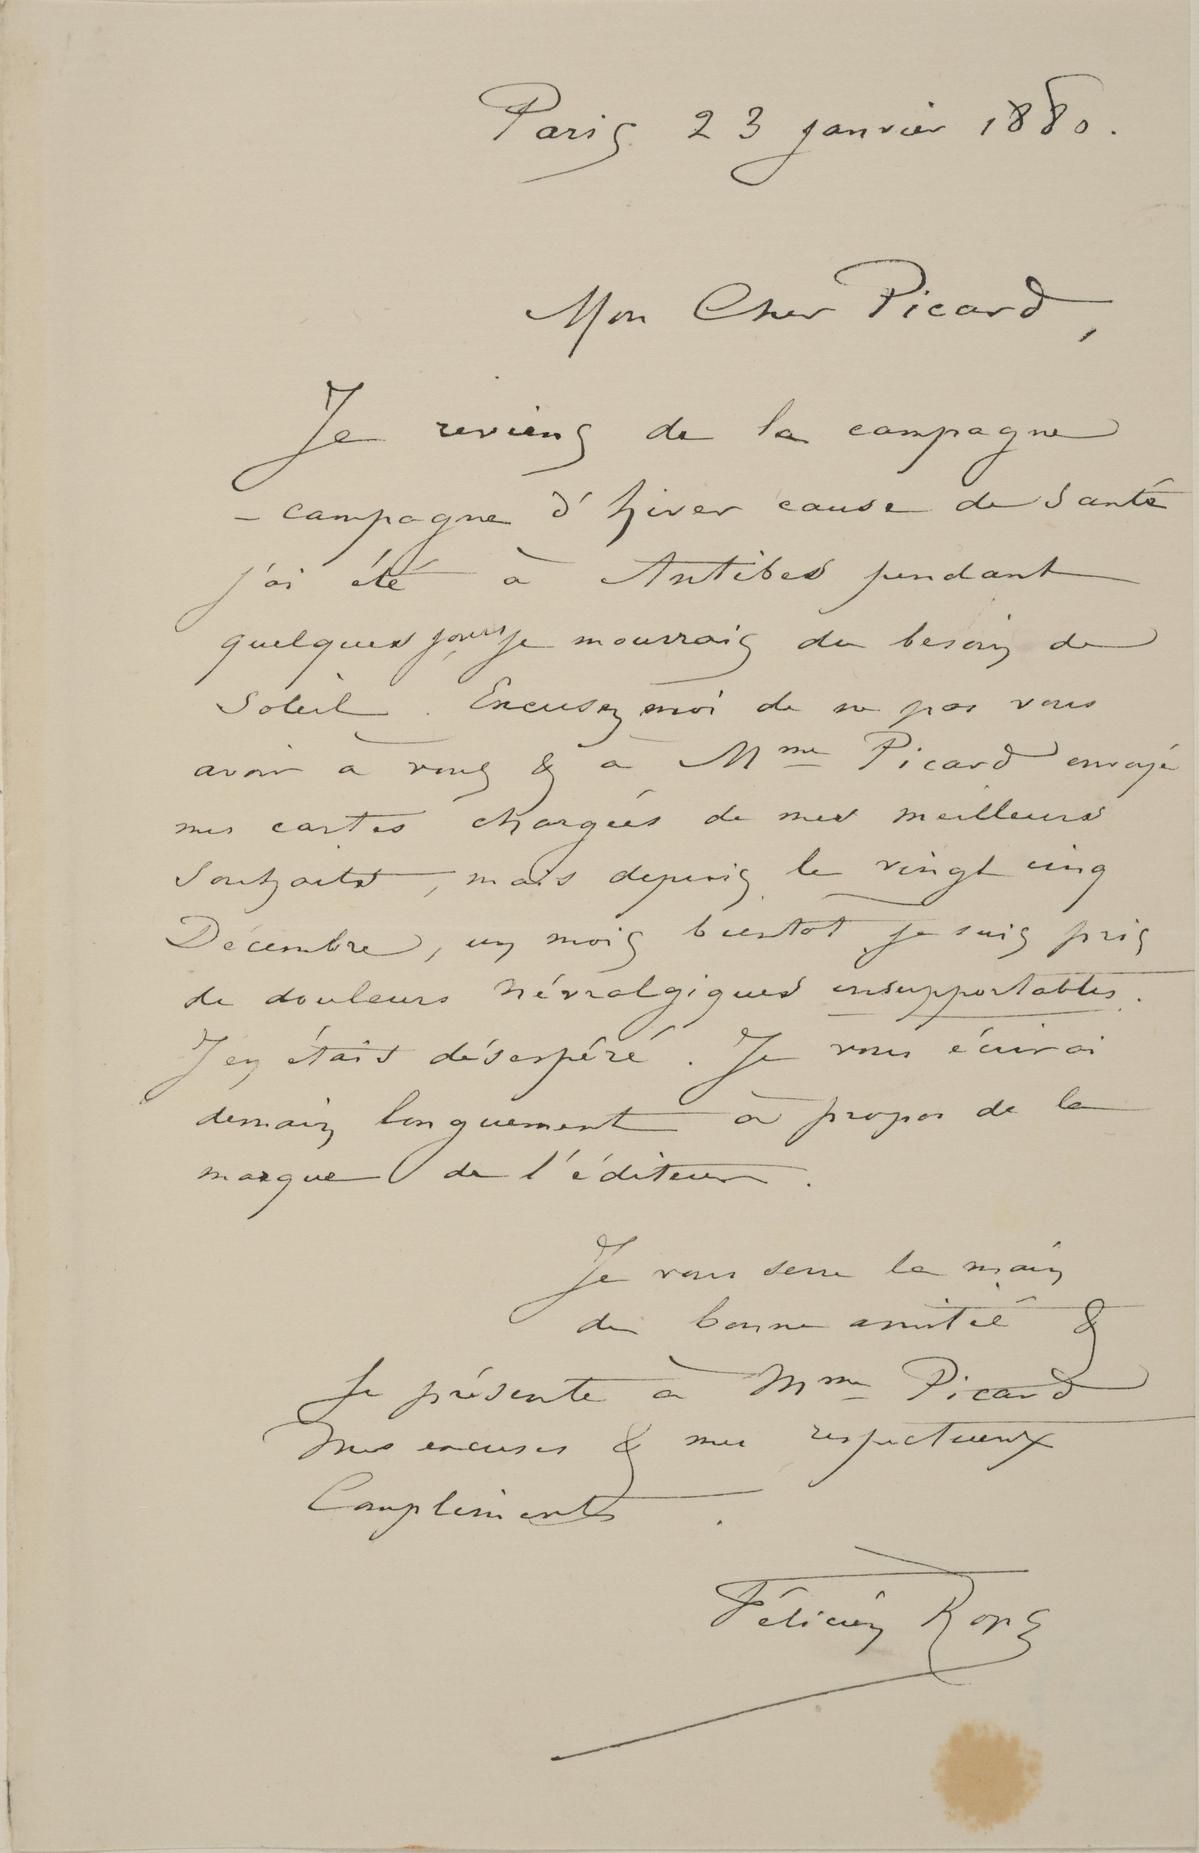 Paris 23 janvier 1880.
Mon Cher Picard,
Je reviens de la campagne
– campagne d'hiver cause de Santé
j'ai été à Antibes pendant
quelques jours je mourrais du besoin de
Soleil. Excusez moi de ne pas vous
avoir à vous & à Mme Picard envoyé
mes cartes chargées de mes meilleurs
Souhaits, mais depuis le vingt cinq
Décembre, un mois bientot je suis pris
de douleurs névralgiques insupportables.
J'en étais désespéré. Je vous écrirai
demain longuement à propos de la
marque de l'éditeur.
Je vous serre la main
de bonne amitié &
Je présente à Mme Picard
Mes excuses & mes respectueux
Compliments.
Félicien Rops